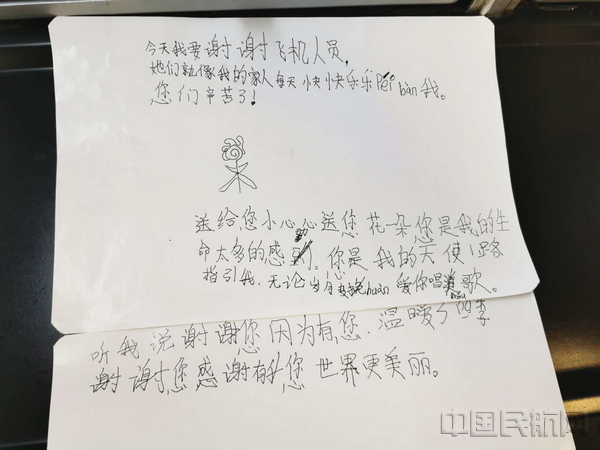 今天我要谢谢飞机人员,
她们就像我的家人每天快快乐乐Péi bàn我。
您们辛苦了!
送给您小心心送您花一朵您是我的生
命太多的感动。你是我的天使1路
指引我.无论岁月变huàn爱你唱 歌。
听我说谢谢您因为有您.温暖了四季
谢谢您感谢有您世界更美丽。
中国民航网